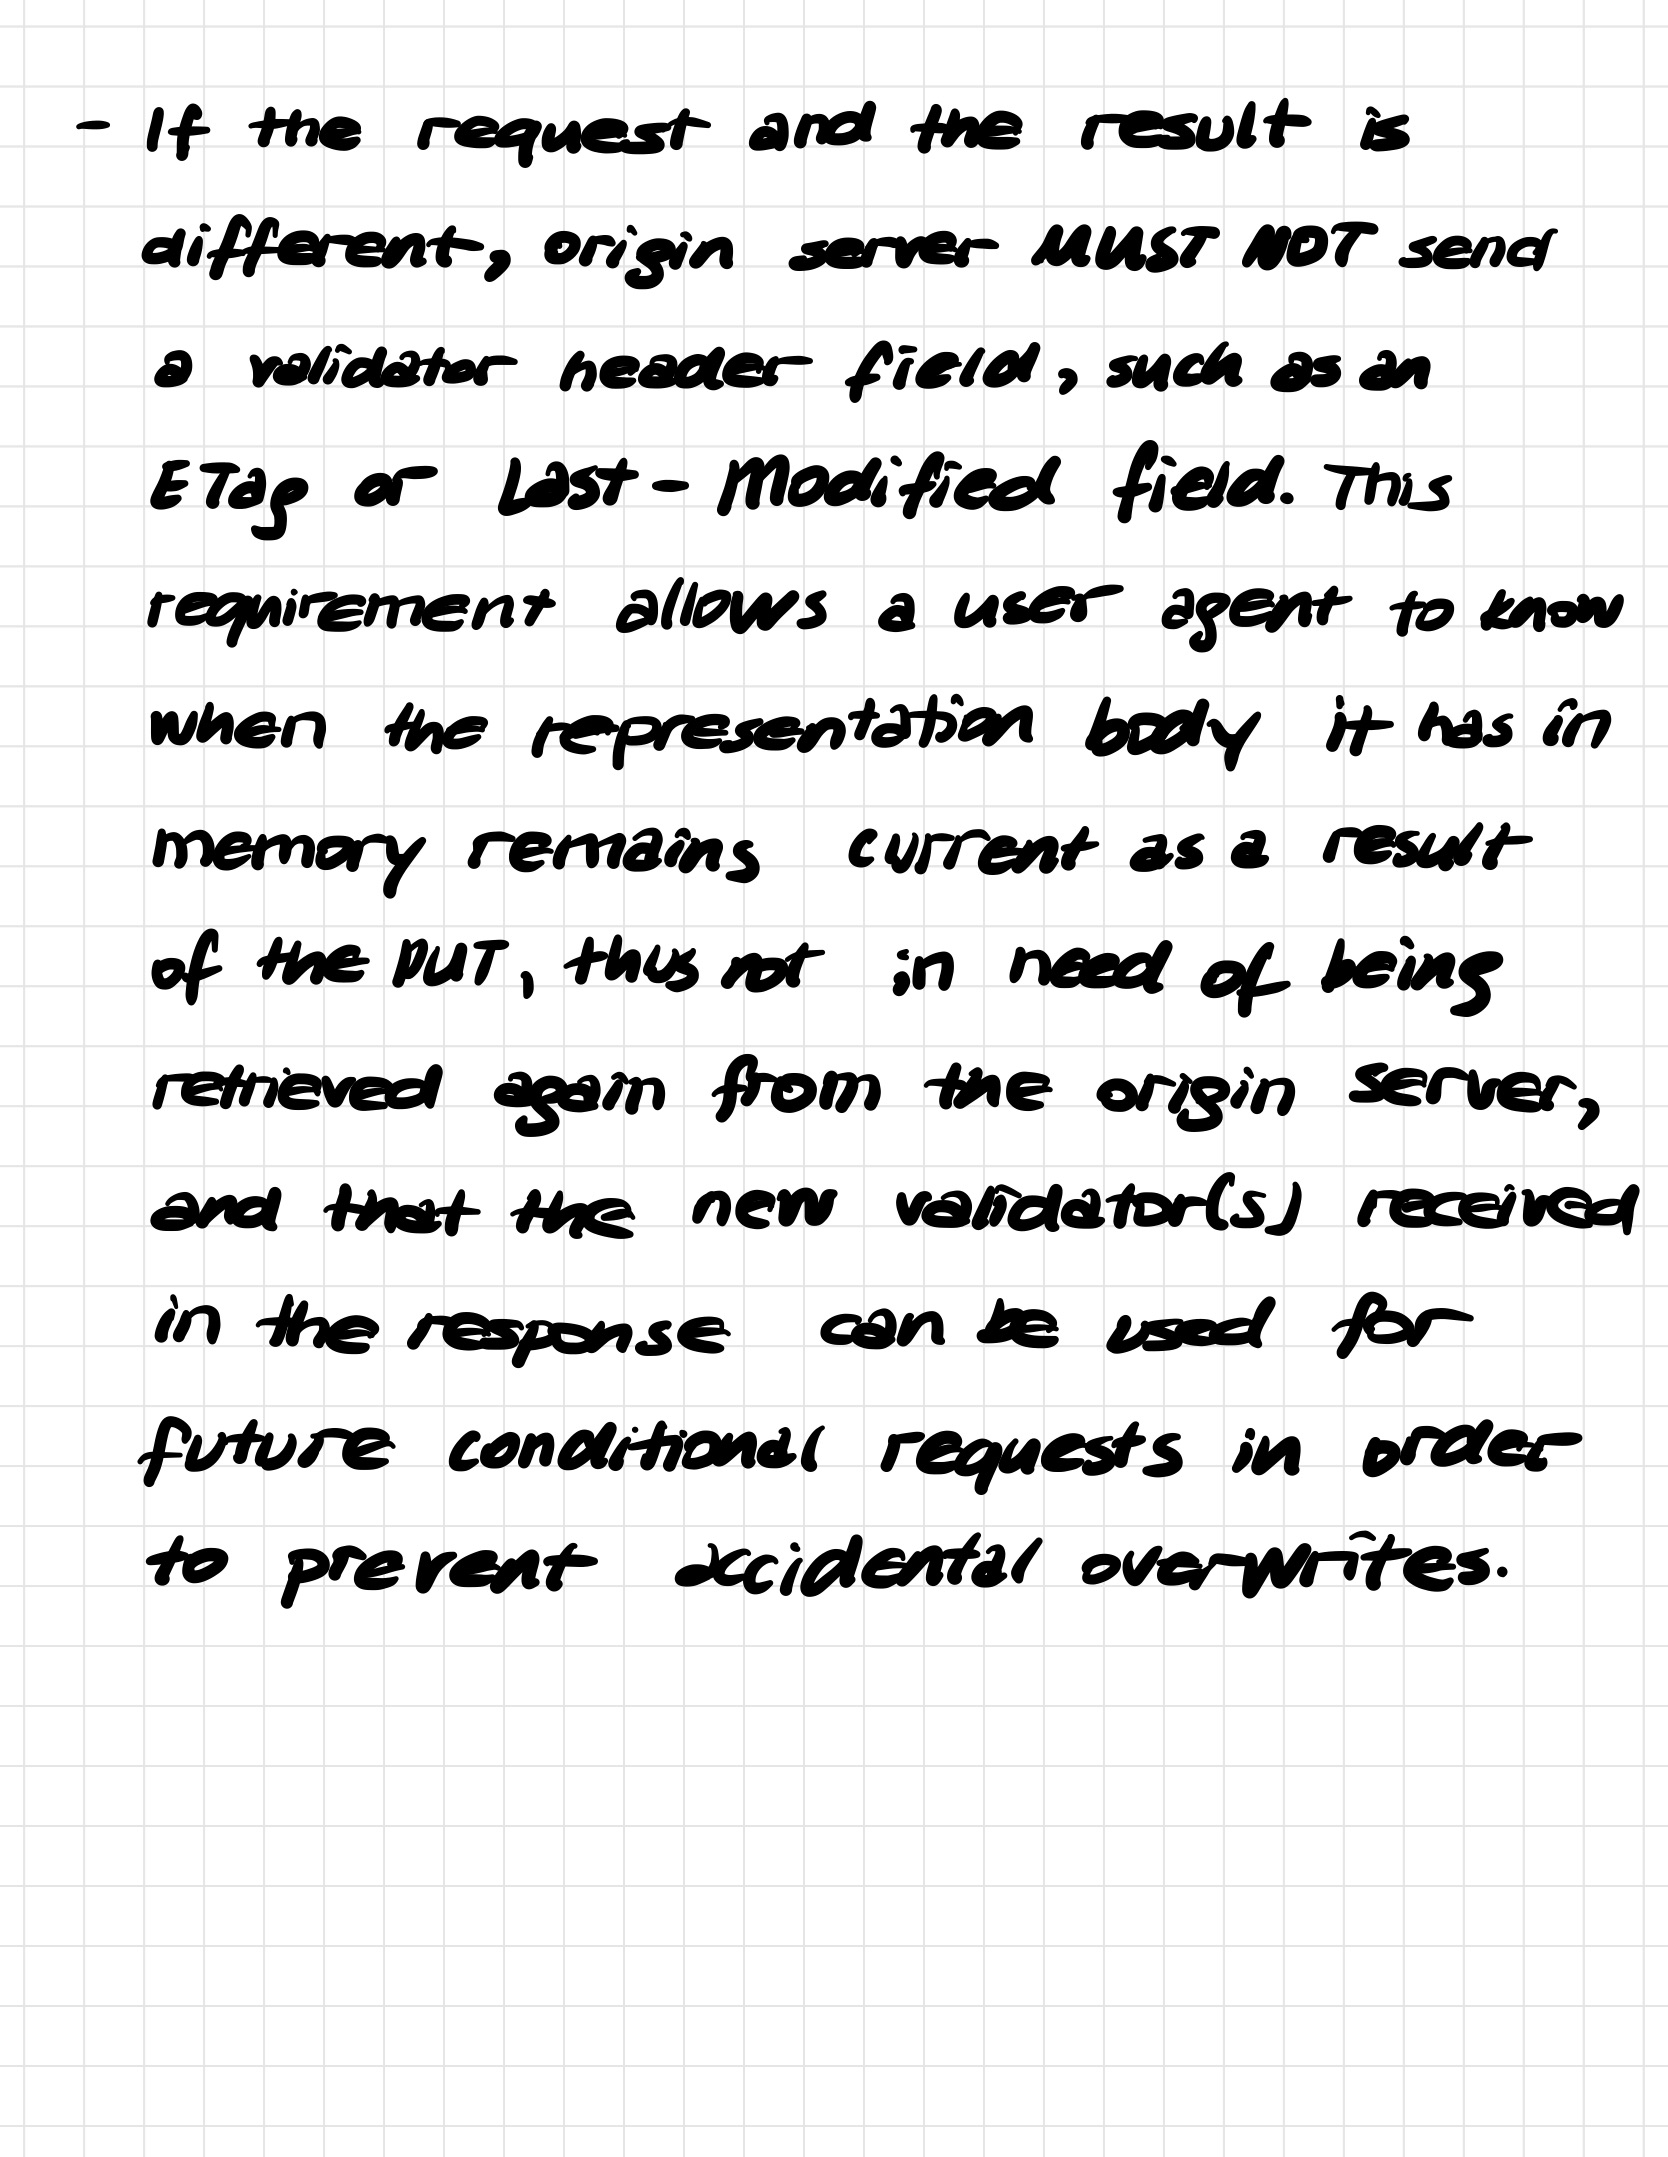 - If the request and the result is
different, origin server MUST NOT send
a validator header field, such as an
ETag or Last-Modified field. This
requirement allows a user agent to know
when the representation body it has in
memory remains current as a result
of the PUT, thus not in need of being
retrieved again from the origin server,
and that the new validator(s) received
in the response can be used for
future conditional requests in order
to prevent accidental overwrites.